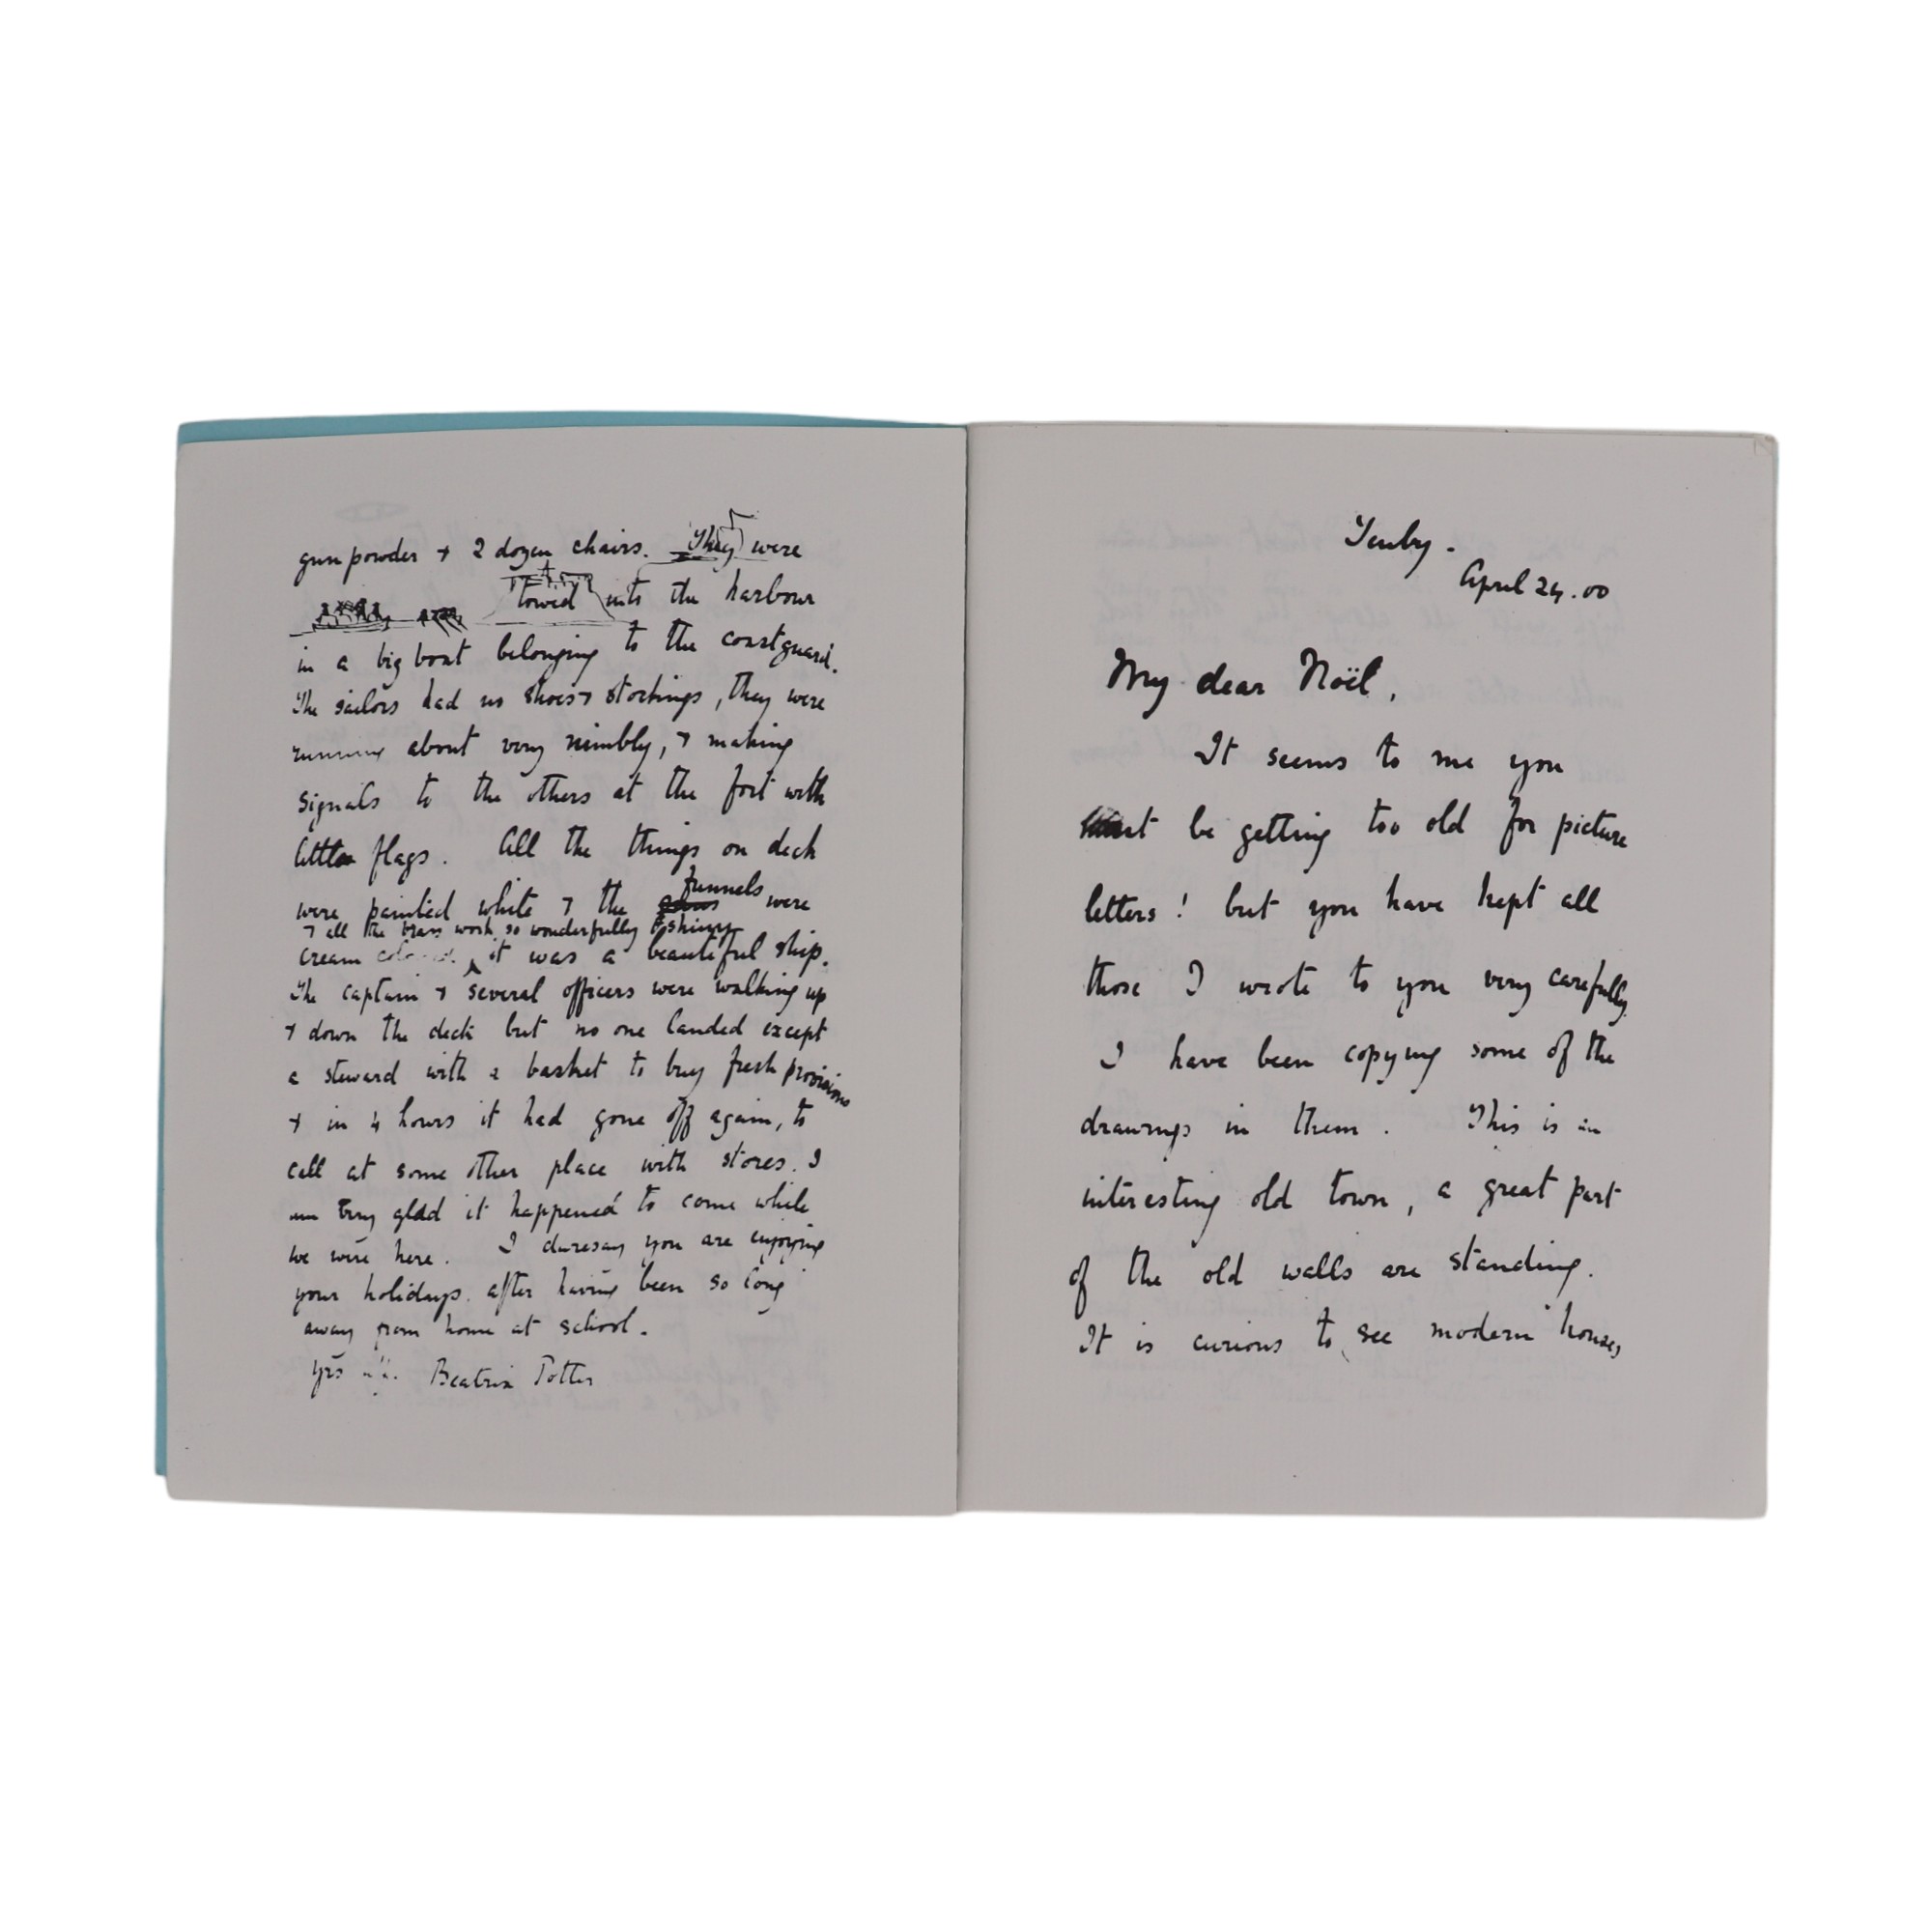 gunpowder + 2 dozen chairs. They were
towed into the harbour
in a big boat belonging to the coastguard.
The sailors had no shoes + stockings, they were
running about very nimbly, + making
signals to the others at the fort with
little flags. All the things on deck
were painted white + the funnels were
+ all the brass work so wonderfully shiny
cream it was a beautiful ship.
The captain + several officers were walking up
+ down the deck but no one landed except
a steward with a basket to buy fresh provisions
+ in 4 hours it had gone off again, to
call at some other place with stores. I
am very glad it happened to come while
we were here. I daresay you are enjoying
your holidays after having been so long
away from home at school.
yrs aff. Beatrix Potter
Tenby.
April 24.00
My dear Noël,
It seems to me you
must be getting too old for picture
letters! but you have kept all
those I wrote to you very carefully
I have been copying some of the
drawings in them. This is an
interesting old town, a great part
of the old walls are standing.
It is curious to see modern houses